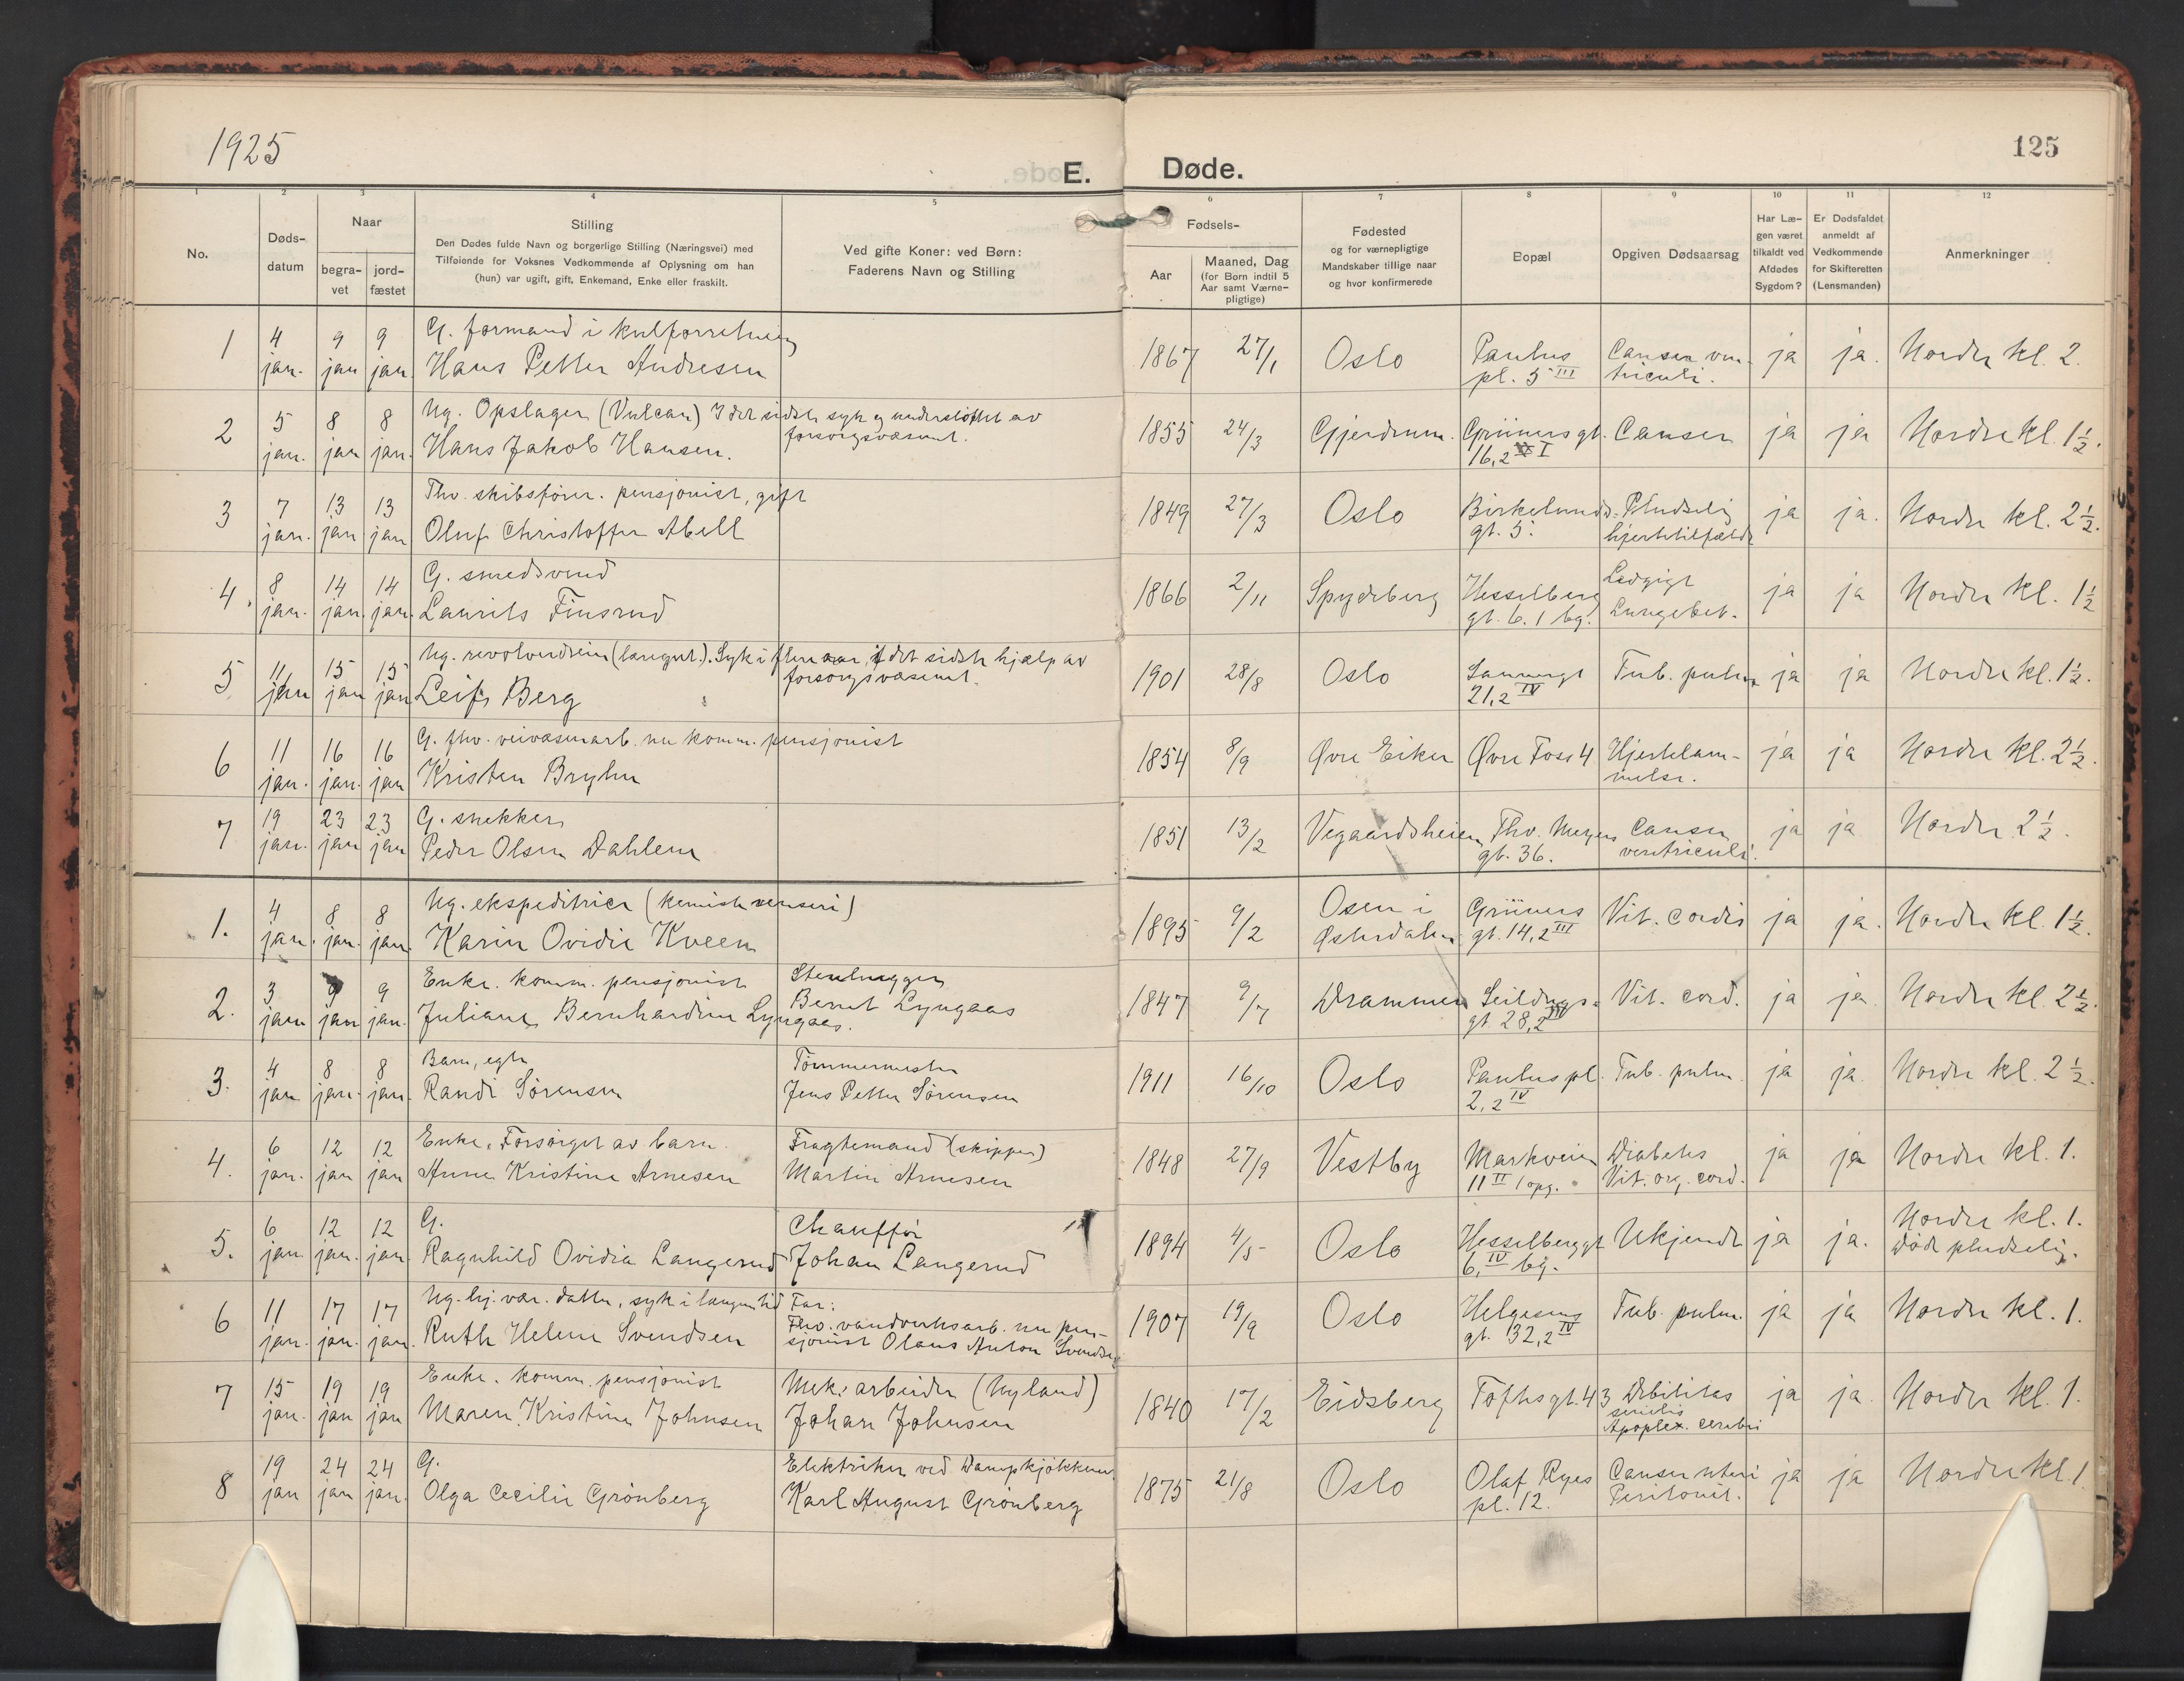 1925
E. Døde.
125
1 2 3 4 5 6 7 8 9 10 11 12
No.
Døds-
datum
Naar
begra-
vet
jord-
fæstet
Stilling
Den Dødes fulde Navn og borgerlige Stilling (Næringsvei) med
Tilføiende for Voksnes Vedkommende af Oplysning om han
(hun) var ugift, gift, Enkemand, Enke eller fraskilt.
Ved gifte Koner: ved Børn:
Faderens Navn og Stilling
Fødsels-
Aar
Maaned, Dag
(for Børn indtil 5
Aar samt Værne-
pligtige)
Fødested
og for værnepligtige
Mandskaber tillige naar
og hvor konfirmerede
Bopæl
Opgiven Dødsaarsag
Har Læ-
gen været
tilkaldt ved
Afdødes
Sygdom?
Er Dødsfaldet
anmeldt af
Vedkommende
for Skifteretten
(Lensmanden)
Anmerkninger
G. formand i kulforretning
1 4 jan. 9 jan 9 jan. Hans Petter Andresen 1867 27/1 Oslo Paulus pl. 5 III Canser ven-triculi. ja ja. Nordre kl. 2.
Ug. Opslager (Vulcan) I det sidste syk og understøttet av forsorgsvæsenet.
2 5 jan. 8 jan 8 jan. Hans Jakob Hansen. 1855 24/3 Gjerdrum. Grüners gt. 16,2 I Canser ja ja Nordre kl. 1½.
Thv. skibsfører. pensjonist, gift
3 7 jan. 13 jan 13 jan Oluf Christoffer Abell 1849 27/3 Oslo Birkelunds-gt. 5. Pludselig hjertetilfælde ja ja. Nordre kl. 2½.
G. smedsvend
4. 8 jan. 14 jan. 14 jan. Laurits Finsrud 1866 2/11 Spydeberg Hesselberg gt. 6. 1 bg. Lungebet. ja ja Nordre kl. 1½
Ug. revolverdreier. Syk i flere aar, i det sidste hjælp av forsorgsvæsenet.
5 11 jan 15 jan 15 jan Leif Berg 1901 28/8 Oslo Sannergt 21,2 IV Tub. pulm. ja ja Nordre kl. 1½.
G. fhv. veivæsenarb. nu komm. pensjonist
6 11 jan. 16 jan. 16 jan Kristen Bryhn 1854 8/9 Øvre Eiker Øvre Foss 4 Hjertelam-melse. ja ja Nordre kl. 2½.
G. snekker
7 19 jan. 23 jan 23 jan Peder Olsen Dahlen 1851 13/2 Vegaardsheien Thv. Meyers gt. 36. Canser ventriculi. ja ja Nordre 2½.
Ug. ekspeditrice (kemisk renseri)
1. 4 jan. 8 jan. 8 jan. Karin Ovidie Kveen 1895 9/2 Osen i Østerdalen Grüners gt. 14,2 III Vit. cordis ja ja. Nordre kl. 1½.
Enke. komm. pensjonist Stenhugger
2. 3 jan 9 jan 9 jan. Juliane Bernhardine Lyngaas. Bernt Lyngaas 1847 9/7 Drammen Seildugs-gt. 28,2 Vit. cord. ja ja. Nordre kl. 2½.
Barn, egte Tømmermester
3. 4 jan 8 jan. 8 jan. Randi Sørensen Jens Petter Sørensen 1911 16/10 Oslo Paulus pl. 2,2 IV Tub. pulm. ja ja. Nordre kl. 2½.
Enke. Forsørget av barn. Fragtemand (skipper)
4. 6 jan. 12 jan 12 jan Anne Kristine Arnesen Martin Arnesen 1848 27/9 Vestby Markveien 11 II 1 opg. Diabetes Vit. org. cord. ja ja Nordre kl. 1.
G. Chauffør
5. 6 jan. 12 jan. 12 jan. Ragnhild Ovidia Langerud Johan Langerud 1894 4/5 Oslo Hesselberggt 6, IV bg. Ukjendt ja ja. Nordre kl. 1. Død pludselig.
Ug. hj. vær. datter, syk i længere tid Far:
6 11 jan. 17 jan. 17 jan. Ruth Helene Svendsen Fhv. vandverksarb. nu pen-sjonist Olaus Anton Svendsen 1907 19/9 Oslo Helgesens gt. 32,2 IV Tub. pulm. ja ja Nordre kl. 1.
Enke. komm. pensjonist Mek. arbeider (Nyland)
7 15 jan. 19 jan 19 jan Maren Kristine Johnsen Johan Johnsen 1840 17/2 Eidsberg Toftesgt. 43 Debilitas senilis Apoplex. cerebri ja ja. Nordre kl. 1.
G. Elektriker ved Dampkjøkkenet.
8 19 jan 24 jan 24 jan. Olga Cecilie Grönberg Karl August Grönberg 1875 21/8 Oslo Olaf Ryes pl. 12. Canser uteri Peritonit. ja ja Nordre kl. 1